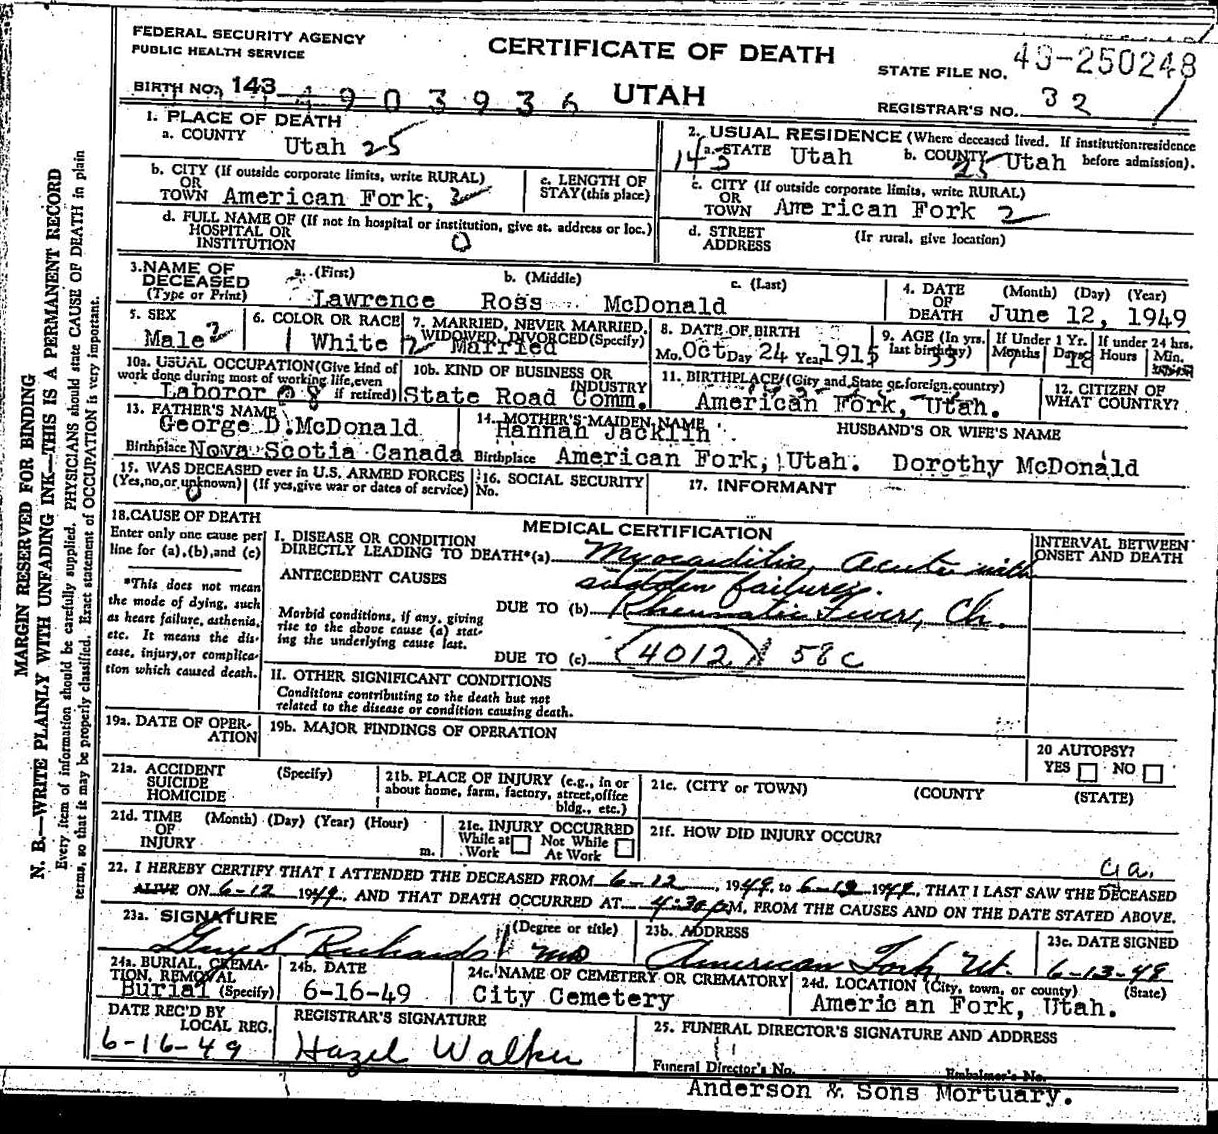 FEDERAL SECURITY AGENCY
PUBLIC HEALTH SERVICE
CERTIFICATE OF DEATH
STATE FILE NO. 49-250248
BIRTH NO. 143 4903936
UTAH
REGISTRAR'S NO. 32
1. PLACE OF DEATH
a. COUNTY Utah 25
2. USUAL RESIDENCE (Where deceased lived. If institution:residence before admission).
143 a. STATE Utah b. COUNTY 25 Utah
b. CITY (If outside corporate limits, write RURAL)
OR
TOWN American Fork, 2
c. LENGTH OF
STAY (this place)
c. CITY (If outside corporate limits, write RURAL)
OR
TOWN American Fork 2
d. FULL NAME OF (If not in hospital or institution, give st. address or loc.)
HOSPITAL OR
INSTITUTION 0
d. STREET (If rural, give location)
ADDRESS
3. NAME OF
DECEASED
(Type or Print)
a. (First) b. (Middle) c. (Last)
Lawrence Ross McDonald
4. DATE (Month) (Day) (Year)
OF
DEATH June 12, 1949
5. SEX
Male 2
6. COLOR OR RACE
White
7. MARRIED, NEVER MARRIED,
WIDOWED, DIVORCED (Specify)
2 Married
8. DATE OF BIRTH
Mo. Oct Day 24 Year 1915
9. AGE (In yrs. last birthday) 33
If Under 1 Yr.
Months Days
If under 24 hrs.
Hours Min.
10a. USUAL OCCUPATION (Give kind of
work done during most of working life, even
if retired)
Laboror
10b. KIND OF BUSINESS OR
INDUSTRY
State Road Comm.
11. BIRTHPLACE (City and State or foreign country)
American Fork, Utah.
12. CITIZEN OF
WHAT COUNTRY?
13. FATHER'S NAME
George D. McDonald
Birthplace Nova Scotia Canada
14. MOTHER'S MAIDEN NAME
Hannah Jacklin
Birthplace American Fork, Utah.
HUSBAND'S OR WIFE'S NAME
Dorothy McDonald
15. WAS DECEASED ever in U.S. ARMED FORCES
(Yes, no, or unknown) (If yes, give war or dates of service)
0
16. SOCIAL SECURITY
No.
17. INFORMANT
18. CAUSE OF DEATH
Enter only one cause per
line for (a), (b), and (c)
*This does not mean
the mode of dying, such
as heart failure, asthenia,
etc. It means the dis-
ease, injury, or complica-
tion which caused death.
MEDICAL CERTIFICATION
INTERVAL BETWEEN
ONSET AND DEATH
I. DISEASE OR CONDITION
DIRECTLY LEADING TO DEATH*(a) Myocarditis, acute with
sudden failure.
ANTECEDENT CAUSES
Morbid conditions, if any, giving
rise to the above cause (a) stat-
ing the underlying cause last.
DUE TO (b) Rheumatic Fever, Ch.
DUE TO (c) 4012 58c
II. OTHER SIGNIFICANT CONDITIONS
Conditions contributing to the death but not
related to the disease or condition causing death.
19a. DATE OF OPER-
ATION
19b. MAJOR FINDINGS OF OPERATION
20 AUTOPSY?
YES NO
21a. ACCIDENT (Specify)
SUICIDE
HOMICIDE
21b. PLACE OF INJURY (e.g., in or
about home, farm, factory, street, office
bldg., etc.)
21c. (CITY or TOWN) (COUNTY (STATE)
21d. TIME (Month) (Day) (Year) (Hour)
OF
INJURY m.
21e. INJURY OCCURRED
While at Work Not While At Work
21f. HOW DID INJURY OCCUR?
22. I HEREBY CERTIFY THAT I ATTENDED THE DECEASED FROM 6-12, 1949, to 6-12 1949, THAT I LAST SAW THE DECEASED
ALIVE ON 6-12 1949, AND THAT DEATH OCCURRED AT 4:30 PM, FROM THE CAUSES AND ON THE DATE STATED ABOVE.
23a. SIGNATURE (Degree or title)
Richards MD
23b. ADDRESS
American Fork, Ut.
23c. DATE SIGNED
6-13-49
24a. BURIAL, CREMA-
TION, REMOVAL
Burial (Specify)
24b. DATE
6-16-49
24c. NAME OF CEMETERY OR CREMATORY
City Cemetery
24d. LOCATION (City, town, or county) (State)
American Fork, Utah.
DATE REC'D BY
LOCAL REG.
6-16-49
REGISTRAR'S SIGNATURE
Hazel Walker
25. FUNERAL DIRECTOR'S SIGNATURE AND ADDRESS
Funeral Director's No. Embalmer's No.
Anderson & Sons Mortuary.
MARGIN RESERVED FOR BINDING
N. B.—WRITE PLAINLY WITH UNFADING INK—THIS IS A PERMANENT RECORD
Every item of information should be carefully supplied. PHYSICIANS should state CAUSE OF DEATH in plain
terms, so that it may be properly classified. Exact statement of OCCUPATION is very important.